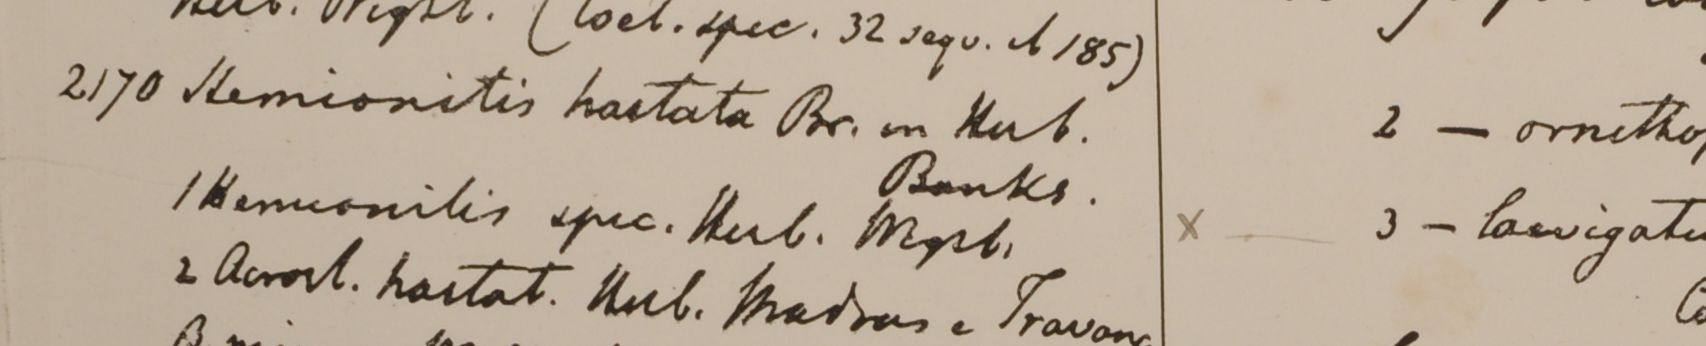 Herb. Wight. (Coel. spec. 32 sequ. et 185)
2170 Hemionitis hastata Br. in Herb.
Banks.
1 Hemionitis spec. Herb. Wight.
2 Acrost. hastat. Herb. Madras e Travanc
2 — ornithop
X 3 — laevigat